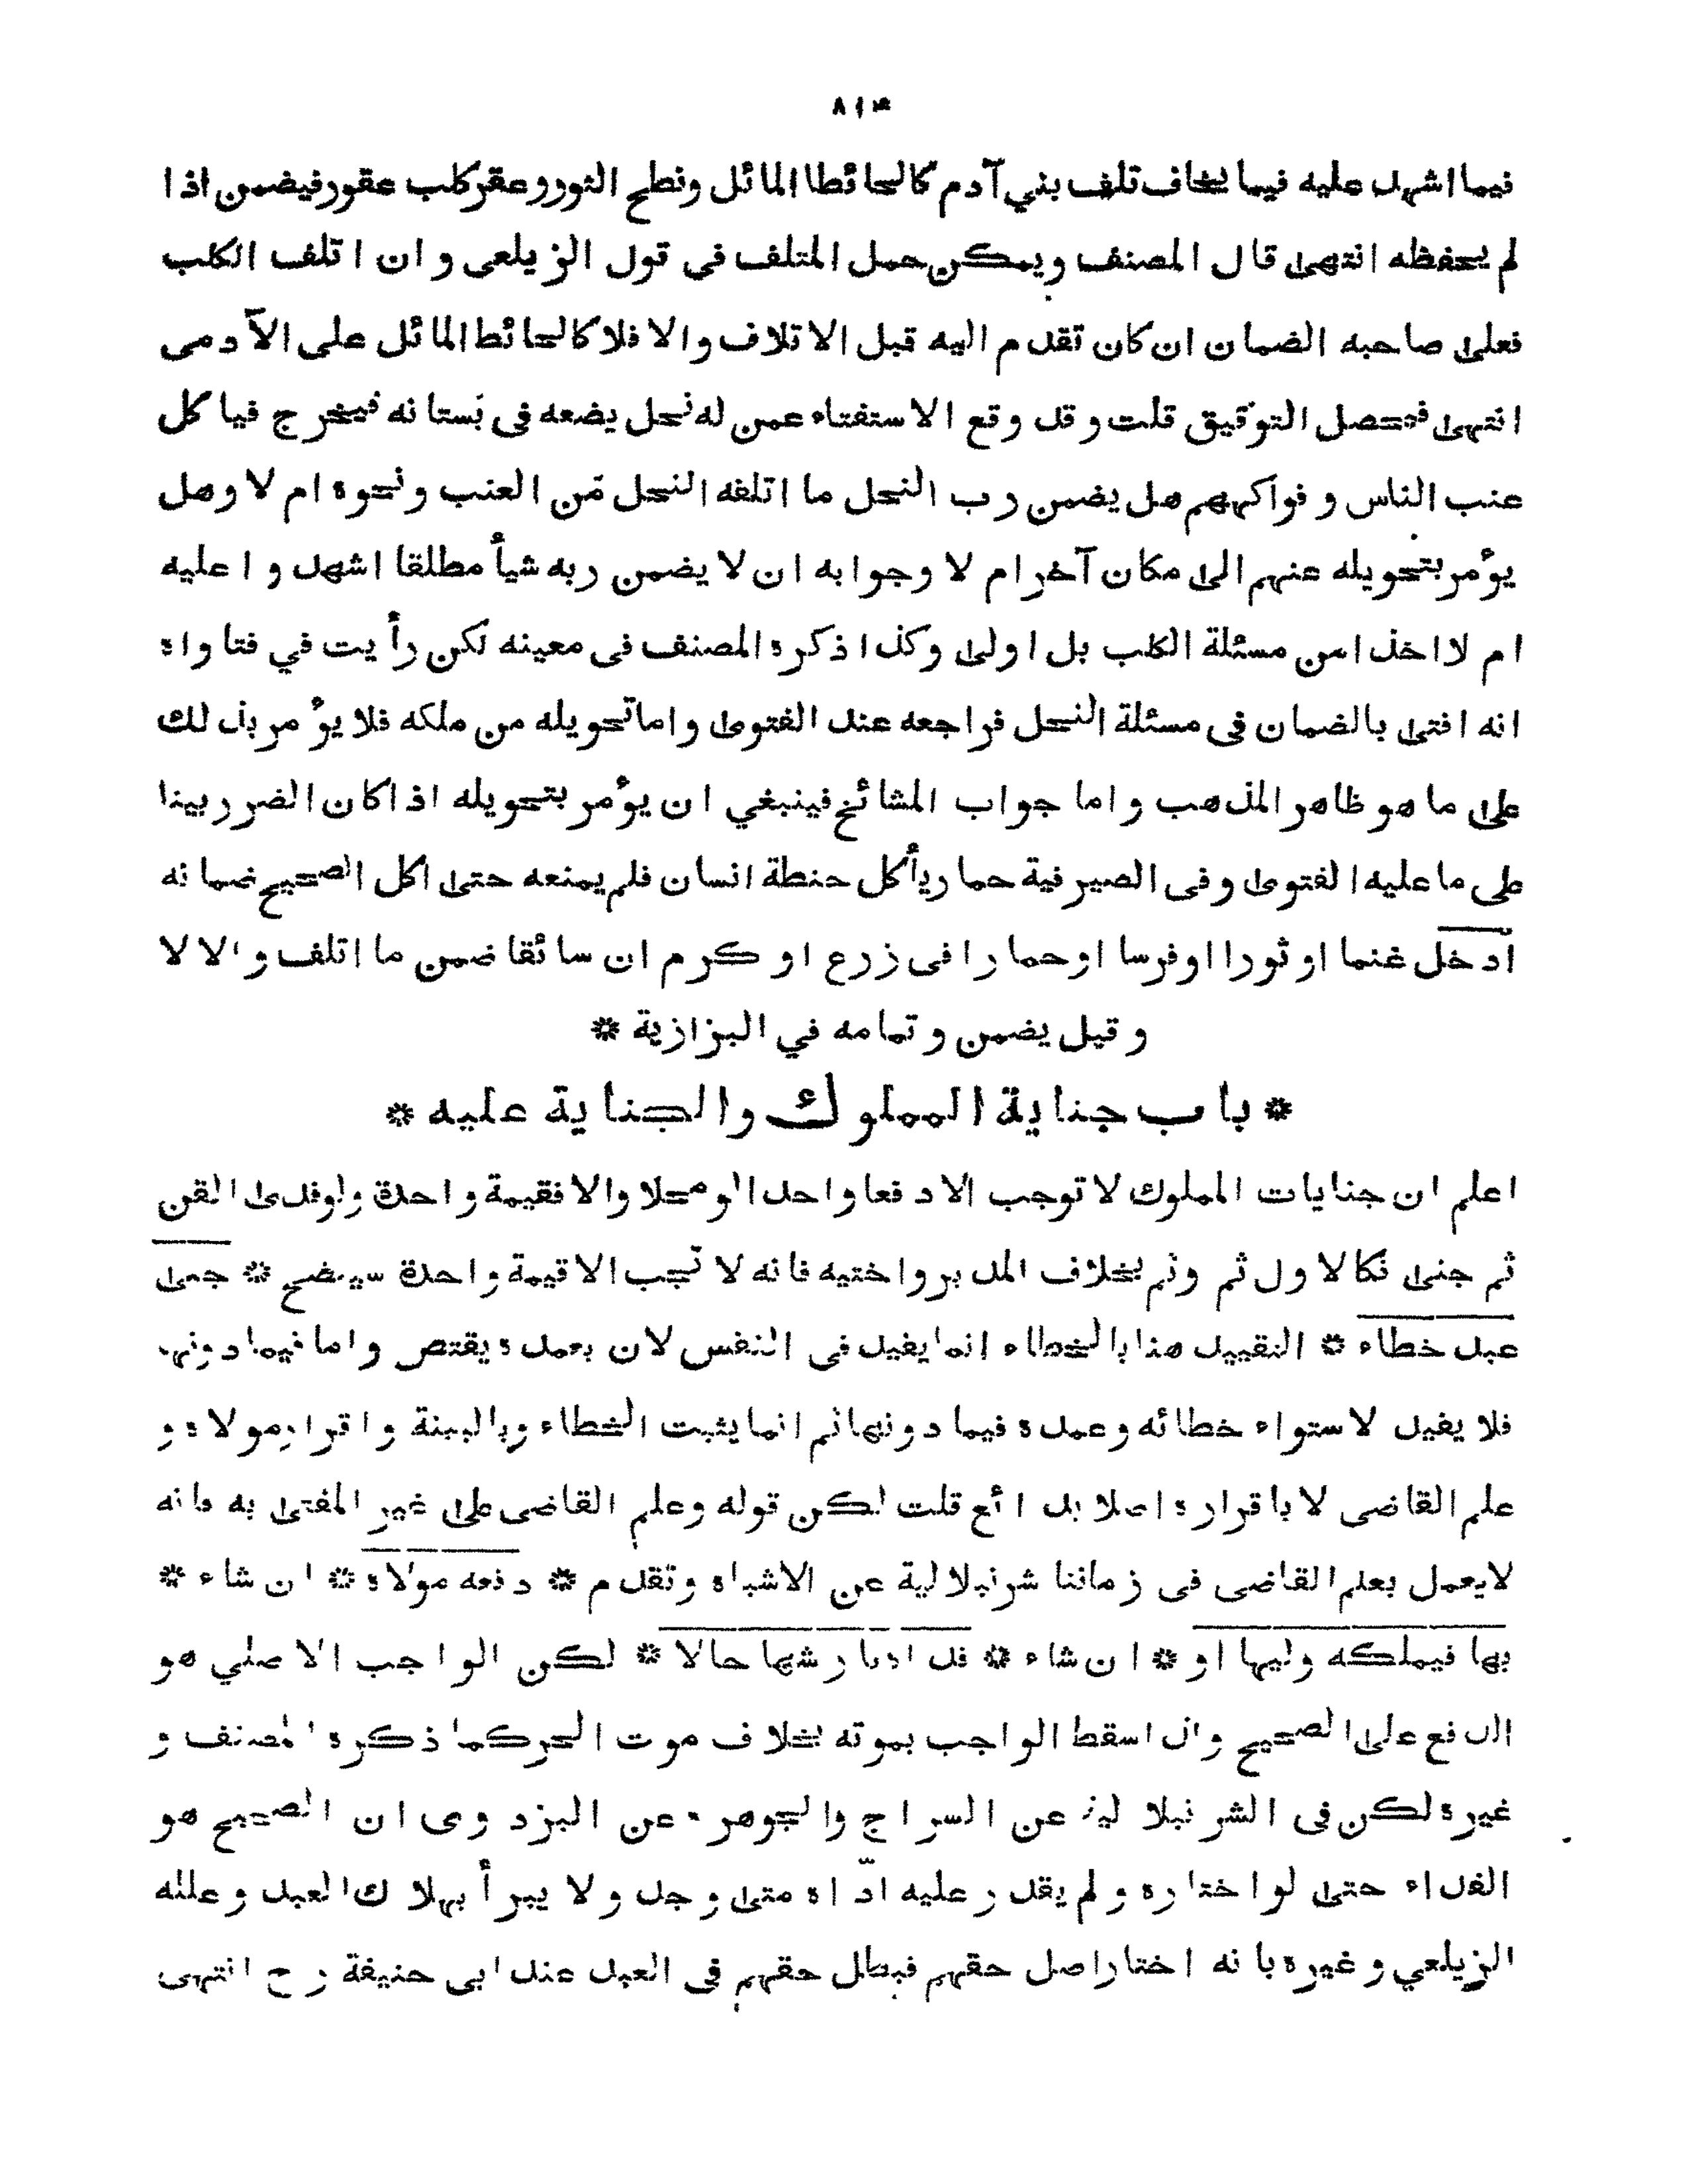 ٨١٣
فيما اشهد عليه فيما يخاف تلف بني آدم كالحائط المائل ونطح الثور وعقر كلب عقور فيضمن اذا
لم يحفظه انتهى قال المصنف ويمكن حمل المتلف في قول الزيلعى وان اتلف الكلب
فعلى صاحبه الضمان ان كان تقدم اليه قبل الاتلاف والا فلا كالحائط المائل على الآدمى
انتهى فيحصل التوفيق قلت وقد وقع الاستفتاء عمن له نحل يضعه فى بستانه فيخرج فياكل
عنب الناس و فواكههم هل يضمن رب النحل ما اتلفه النحل من العنب ونحوه ام لا وهل
يؤمر بتحويله عنهم الى مكان آخر ام لا وجوابه ان لا يضمن ربه شيأ مطلقا اشهدوا عليه
ام لا اخذا من مسئلة الكلب بل اولى وكذا ذكره المصنف فى معينه لكن رأيت في فتاواه
انه افتى بالضمان فى مسئلة النحل فراجعه عند الفتوى واما تحويله من ملكه فلا يؤمر بذلك
على ما هو ظاهر المذهب واما جواب المشائخ فينبغي ان يؤمر بتحويله اذا كان الضرر بينا
على ما عليه الفتوى وفى الصيرفية حمار يأكل حنطة انسان فلم يمنعه حتى اكل الصحيح ضمانه
ادخل غنما او ثورا اوفرسا اوحمارا فى زرع او كرم ان سائقا ضمن ما اتلف والا لا
وقيل يضمن وتمامه في البزازية *
* باب جناية المملوك والجناية عليه *
اعلم ان جنايات المملوك لا توجب الا دفعا واحدا لو محلا والا فقيمة واحدة ولو فدى القن
ثم جنى فكالاول ثم وثم بخلاف المدبر واختيه فانه لا تجب الا قيمة واحدة سيتضح * جنى
عبد خطاء * التقييد هنا بالخطاء انما يفيد فى النفس لان بعمده يقتص واما فيما دونها
فلا يفيد لاستواء خطائه وعمده فيما دونها ثم انما يثبت الخطاء وبالبينة واقرار مولاه و
علم القاضى لا باقراره اصلا بدائع قلت لكن قوله وعلم القاضى على غير المفتى به فانه
لايعمل بعلم القاضى فى زماننا شرنبلالية عن الاشباه وتقدم * دفعه مولاه * ان شاء *
بها فيملكه وليها او * ان شاء * فداه بارشها حالا * لكن الواجب الاصلي هو
الدفع على الصحيح ولذا سقط الواجب بموته بخلاف موت الحر كما ذكره المصنف و
غيره لكن فى الشرنبلالية عن السراج والجوهرة عن البزدوى ان الصحيح هو
الفداء حتى لو اختاره ولم يقدر عليه ادّاه متى وجد ولا يبرأ بهلاك العبد وعلله
الزيلعي وغيره بانه اختار اصل حقهم فبطل حقهم فى العبد عند ابى حنيفة رح انتهى